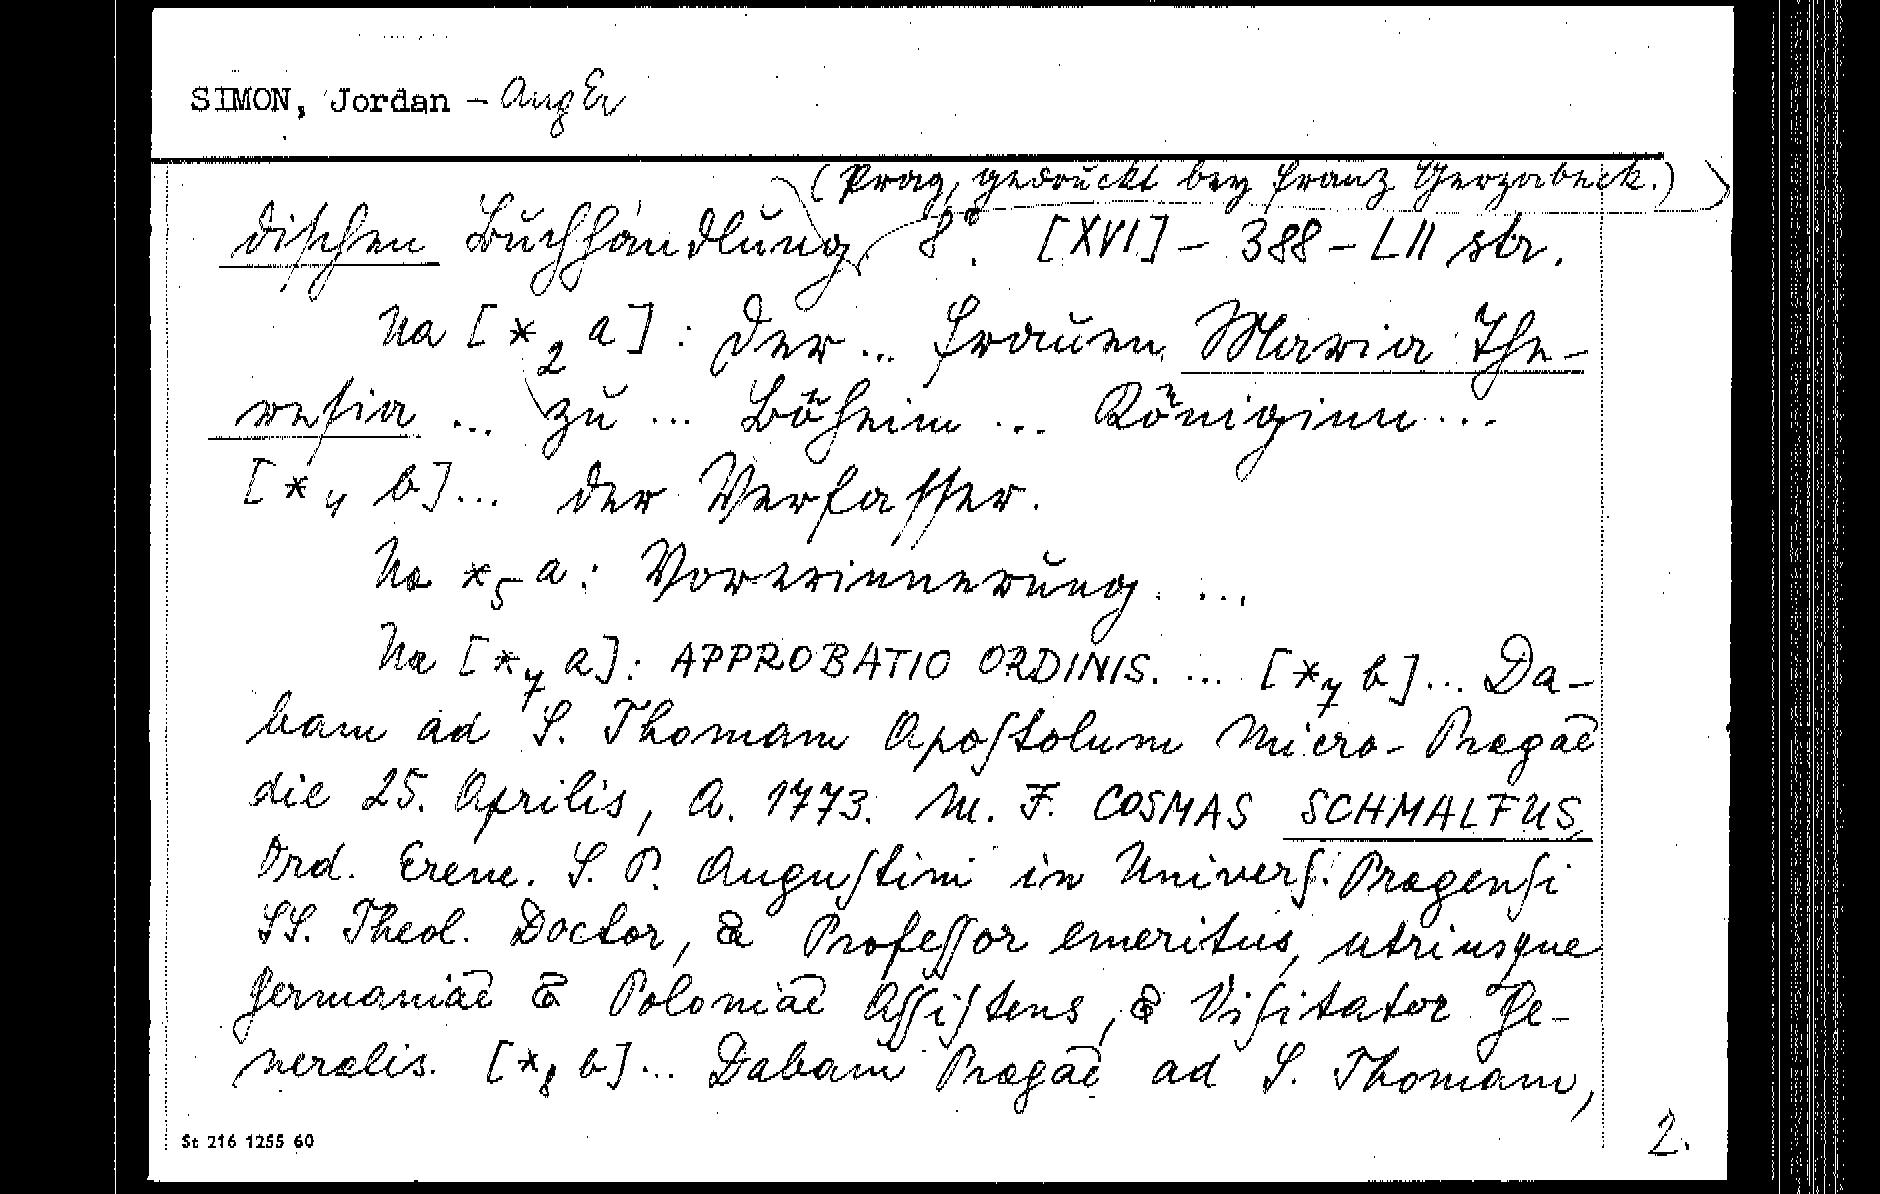 SIMON, Jordan – AugEr
(Prag, gedruckt bey Franz Gerzabeck.)
dischen Buchhandlung 8°. [XVI] – 388 – LII str.
Na [*2 a]: Der ... Frauen Maria The-
resia ... zu ... Böheim ... Königinn ...
[*4 b] ... der Verfasser.
Na *5 a: Vorerinnerung. ...
Na [*7 a]: APPROBATIO ORDINIS. ... [*7 b] ... Da-
bam ad S. Thomam Apoſtolum Micro-Pragae
die 25. Aprilis, A. 1773. M. F. COSMAS SCHMALFUS
Ord. Erem. S. P. Auguſtini in Univerſ. Pragenſi
SS. Theol. Doctor, & Profeſſor emeritus, utriusque
Germaniae & Poloniae Aſſiſtens, & Viſitator Ge-
neralis. [*8 b] ... Dabam Pragae ad S. Thomam,
St 216 1255 60
2.